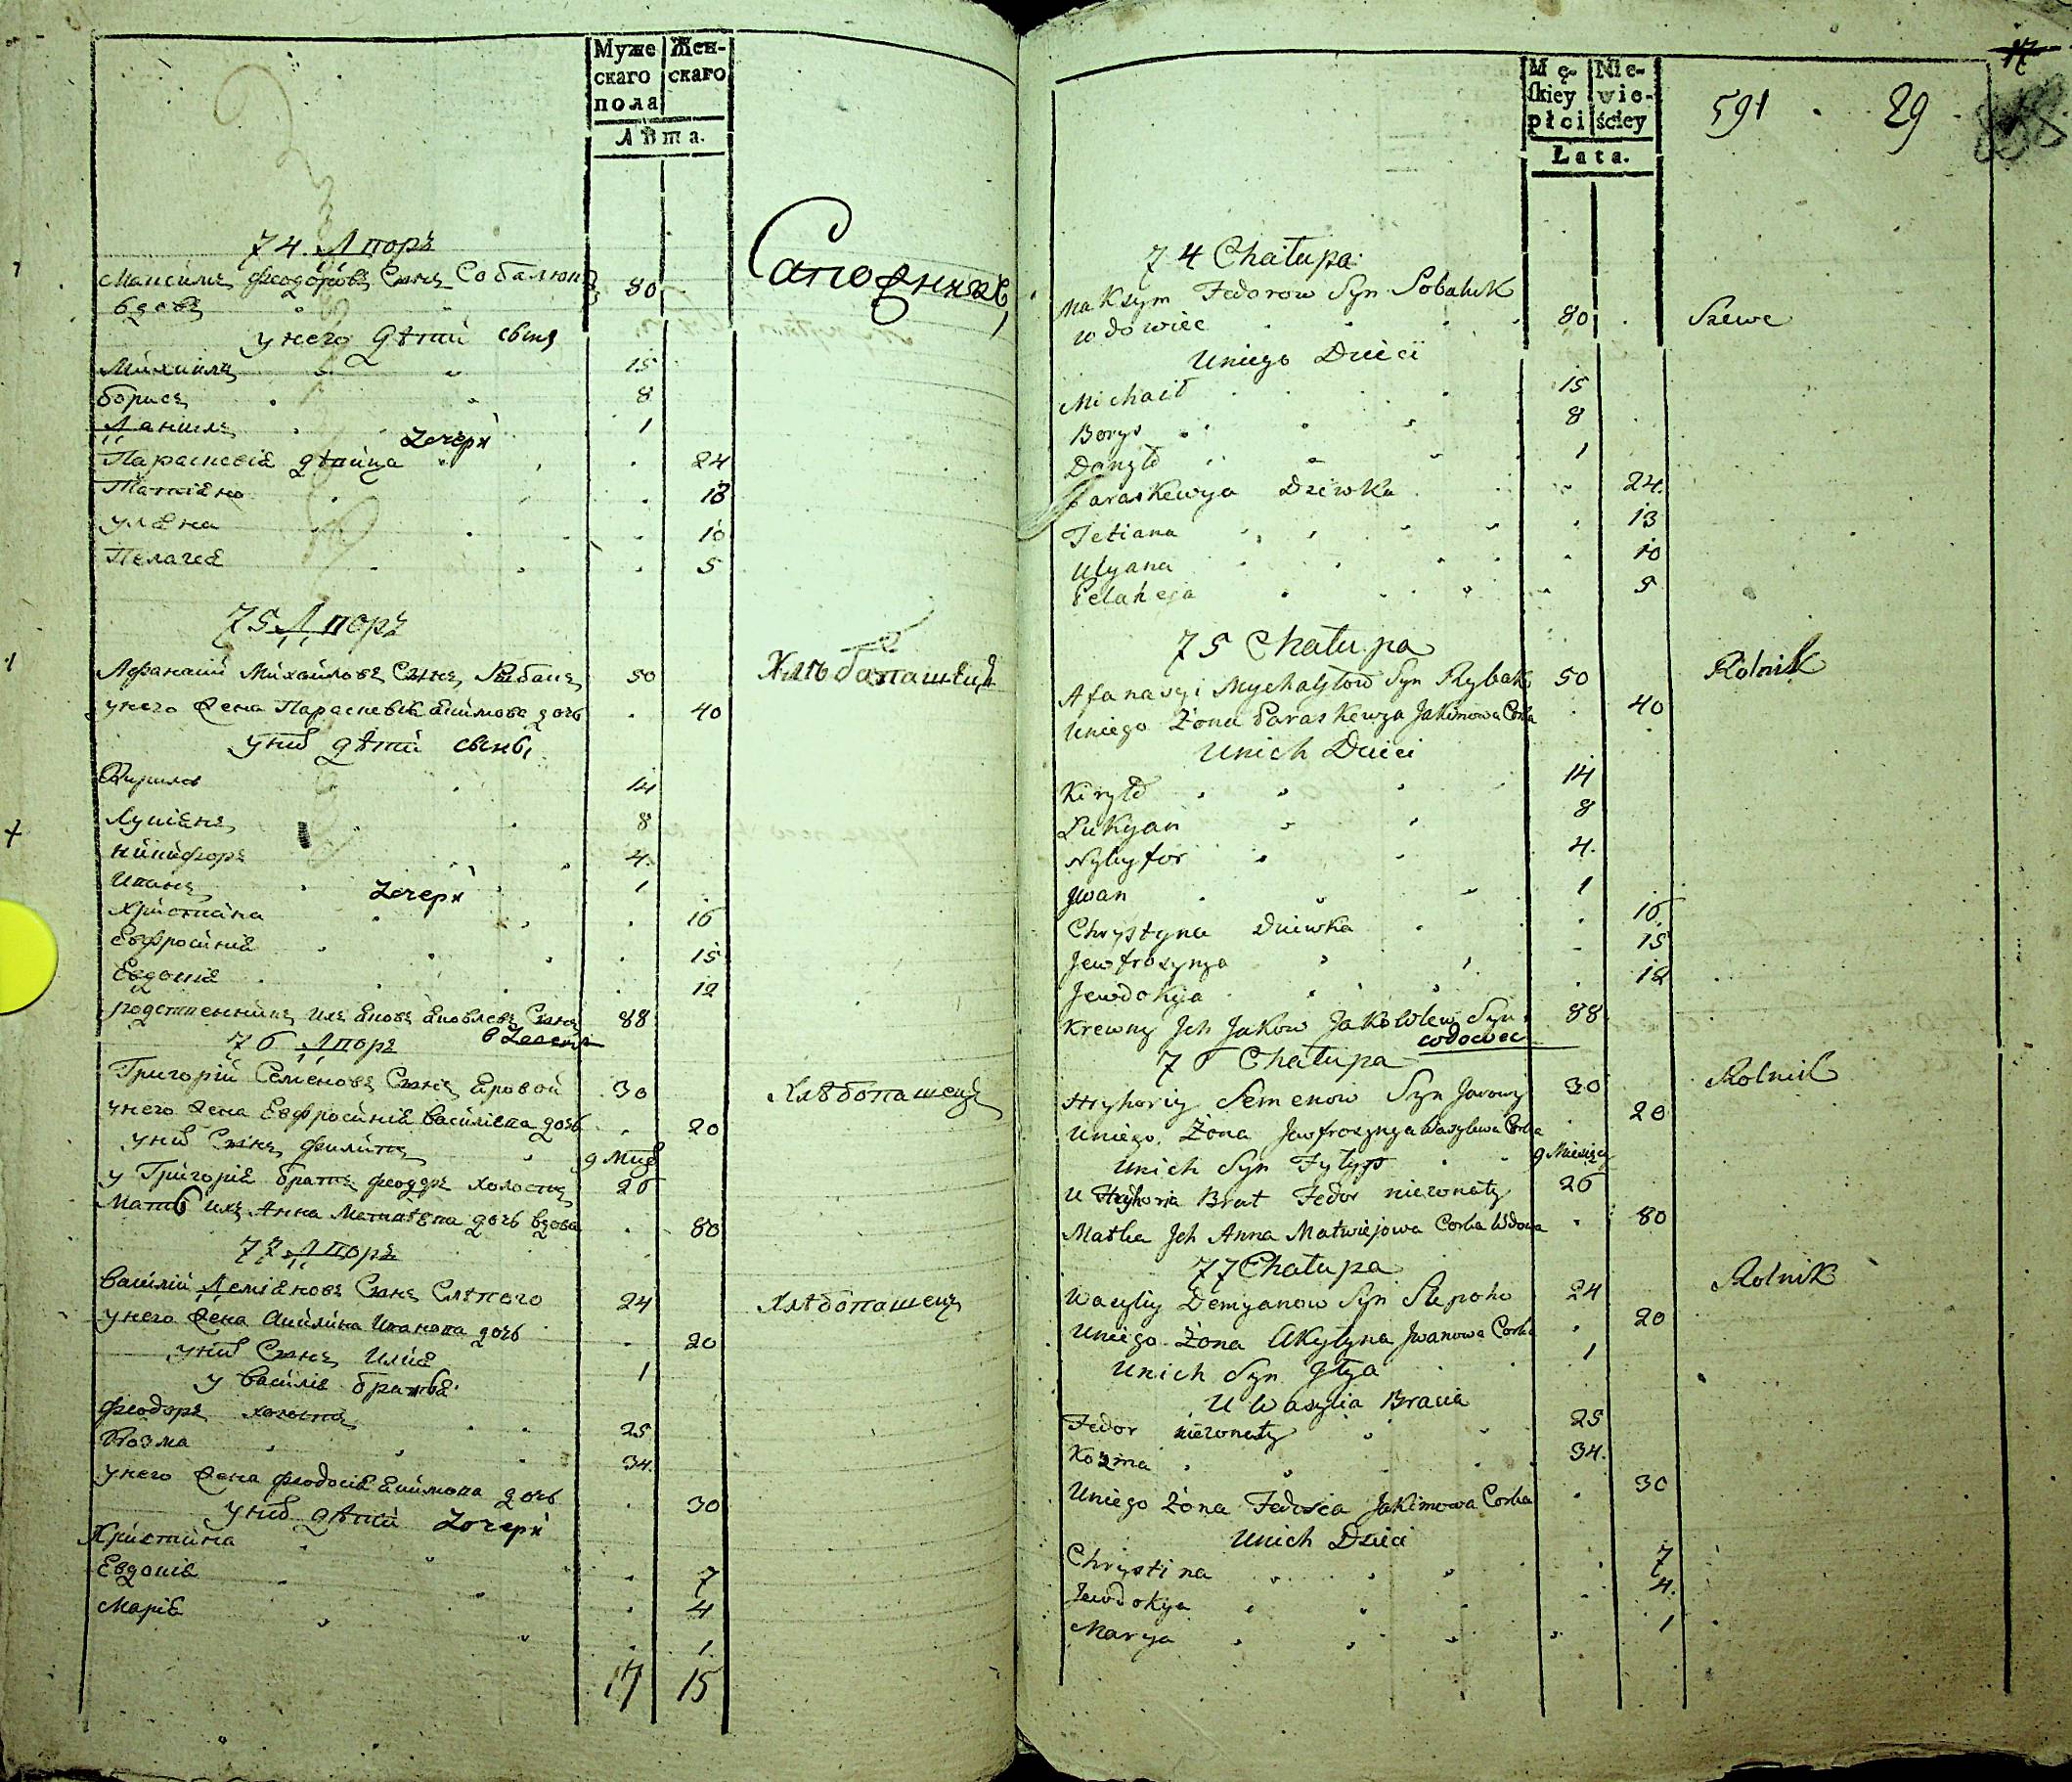 Муже
скаго
пола
Жен-
скаго
Лѣта.
74. Дворъ
Максимъ Феодоровъ Сынъ Собалюкъ 80 Сапожникъ
вдовъ
у него дѣти сыны
Михаилъ 15
Борисъ 8
Данилъ 1
дочери
Параскевія дѣвица 24
Татіяна 13
Уляна 10
Пелагея 5
75 Дворъ
Афанасій Михайловъ Сынъ Рыбакъ 50 Хлѣбопашецъ
у него жена Параскевія Якимова дочь 40
у них дѣти сыны
Кирило 14
Лукіянъ 8
Никифоръ 4.
Иванъ 1
дочери
Христина 16
Евфросинія 15
Евдокія 12
родственникъ ихъ Яковъ Яковлевъ Сынъ 88
вдовецъ
76 Дворъ
Григорій Семеновъ Сынъ Яровой 30 Хлѣбопашецъ
у него жена Евфросинія Василіева дочь 20
у них Сынъ Филипъ 9 Мцъ
у Григорія братъ Феодоръ холостъ 26
Мать ихъ Анна Матвѣева дочь вдова 80
77 Дворъ
Василій Деміяновъ Сынъ Слѣпого 24 Хлѣбопашецъ
у него жена Акилина Иванова дочь 20
у них Сынъ Илія 1
у Василія братья
Феодоръ холостъ 25
Козма 34.
у него жена Феодосія Якимова дочь 30
у них дѣти дочери
Христина 7
Евдокія 4
Марія 1
17 15
Mę-
skiey
płci
Nie-
wie-
ściey
Łata.
17
591 29
74 Chałupa
Maksym Fedorow Syn Sobaluk
wdowiec 80 Szewc
Uniego Dzieci
Michaił 15
Borys 8
Danyło 1
Paraskewya Dziwka 24.
Tetiana 13
Ulyana 10
Pelaheja 5
75 Chałupa
Afanasyi Mychałow Syn Rybak 50 Rolnik
Uniego Żona Paraskewya Jakimowa Corka 40
Unich Dzieci
Kiryło 14
Łukyan 8
Nykyfor 4.
Jwan 1
Chrystyna Dziwka 16
Jewfrosynya 15
Jewdokya 12
Krewny Jch Jakow Jakowlew Syn 88
wdowec
76 Chałupa
Hryhoriy Semenow Syn Jarowy 30 Rolnik
Uniego Żona Jewfrosynya Wasylewa Corka 20
Unich Syn Fylyp 9 Miesięcy
U Hryhoria Brat Fedor nieżonaty 26
Matka Jch Anna Matwiejowa Corka Wdowa 80
77 Chałupa
Wasyliy Demyanow Syn Slepoho 24 Rolnik
Uniego Żona Akylyna Jwanowa Corka 20
Unich Syn Jlya 1
U Wasylia Bracia
Fedor nieżonaty 25
Kozma 34.
Uniego Żona Fedosia Jakimowa Corka 30
Unich Dzieci
Chrystina 7
Jewdokya 4.
Marya 1